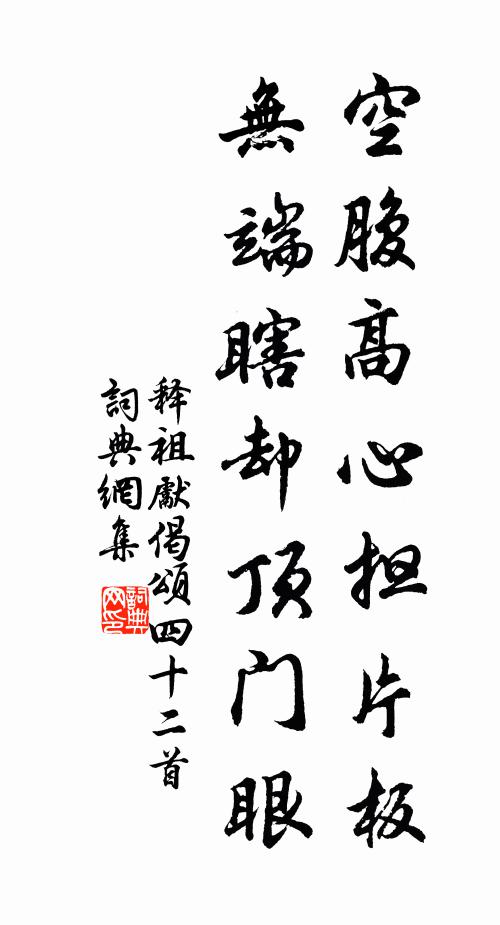 空腹高心担片板
無端瞎却顶门眼
释祖獻偈頌四十二首
詞典網集
詞典网印